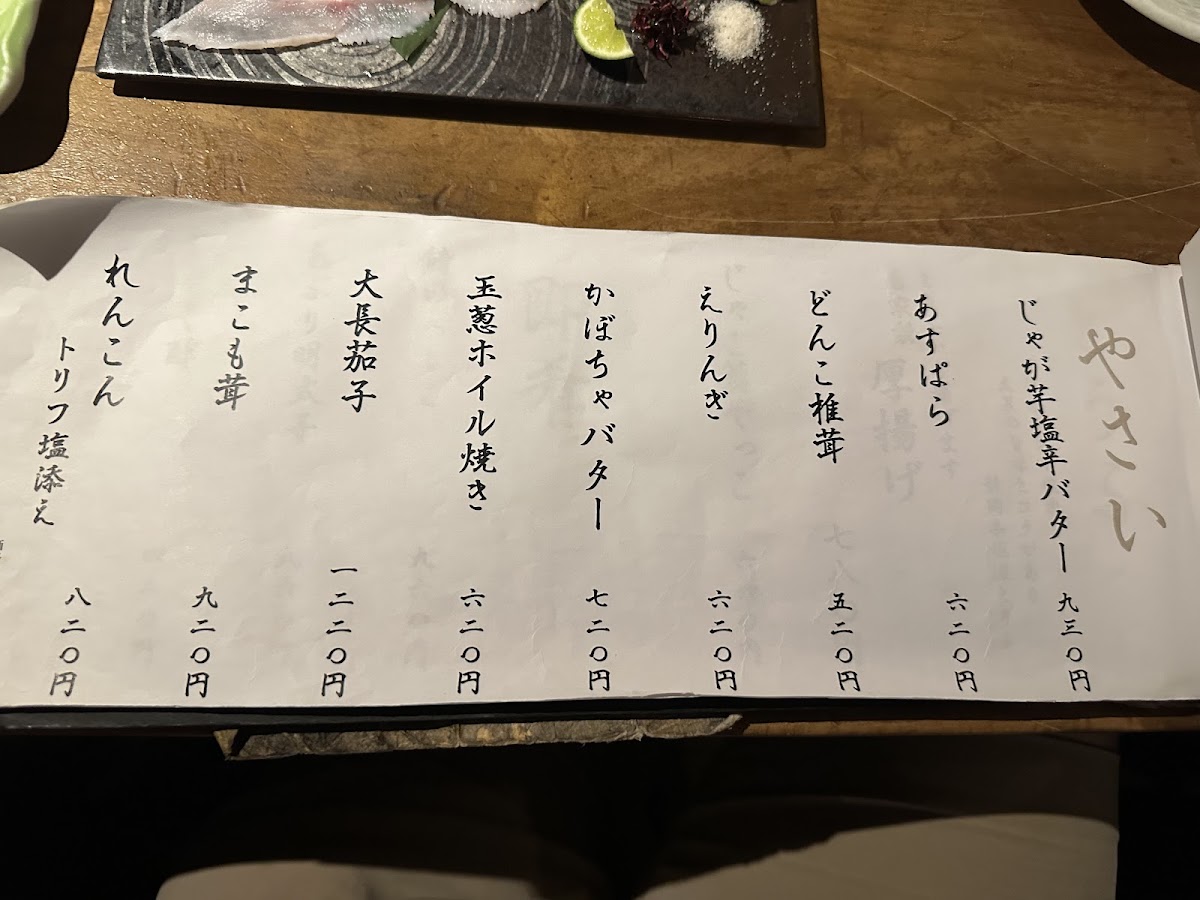 やさい
じゃが芋塩辛バター 九三〇円
あすぱら 六二〇円
どんこ椎茸 五二〇円
えりんぎ 六二〇円
かぼちゃバター 七二〇円
玉葱ホイル焼き 六二〇円
大長茄子 一二二〇円
まこも茸 九二〇円
れんこん
トリフ塩添え 八二〇円